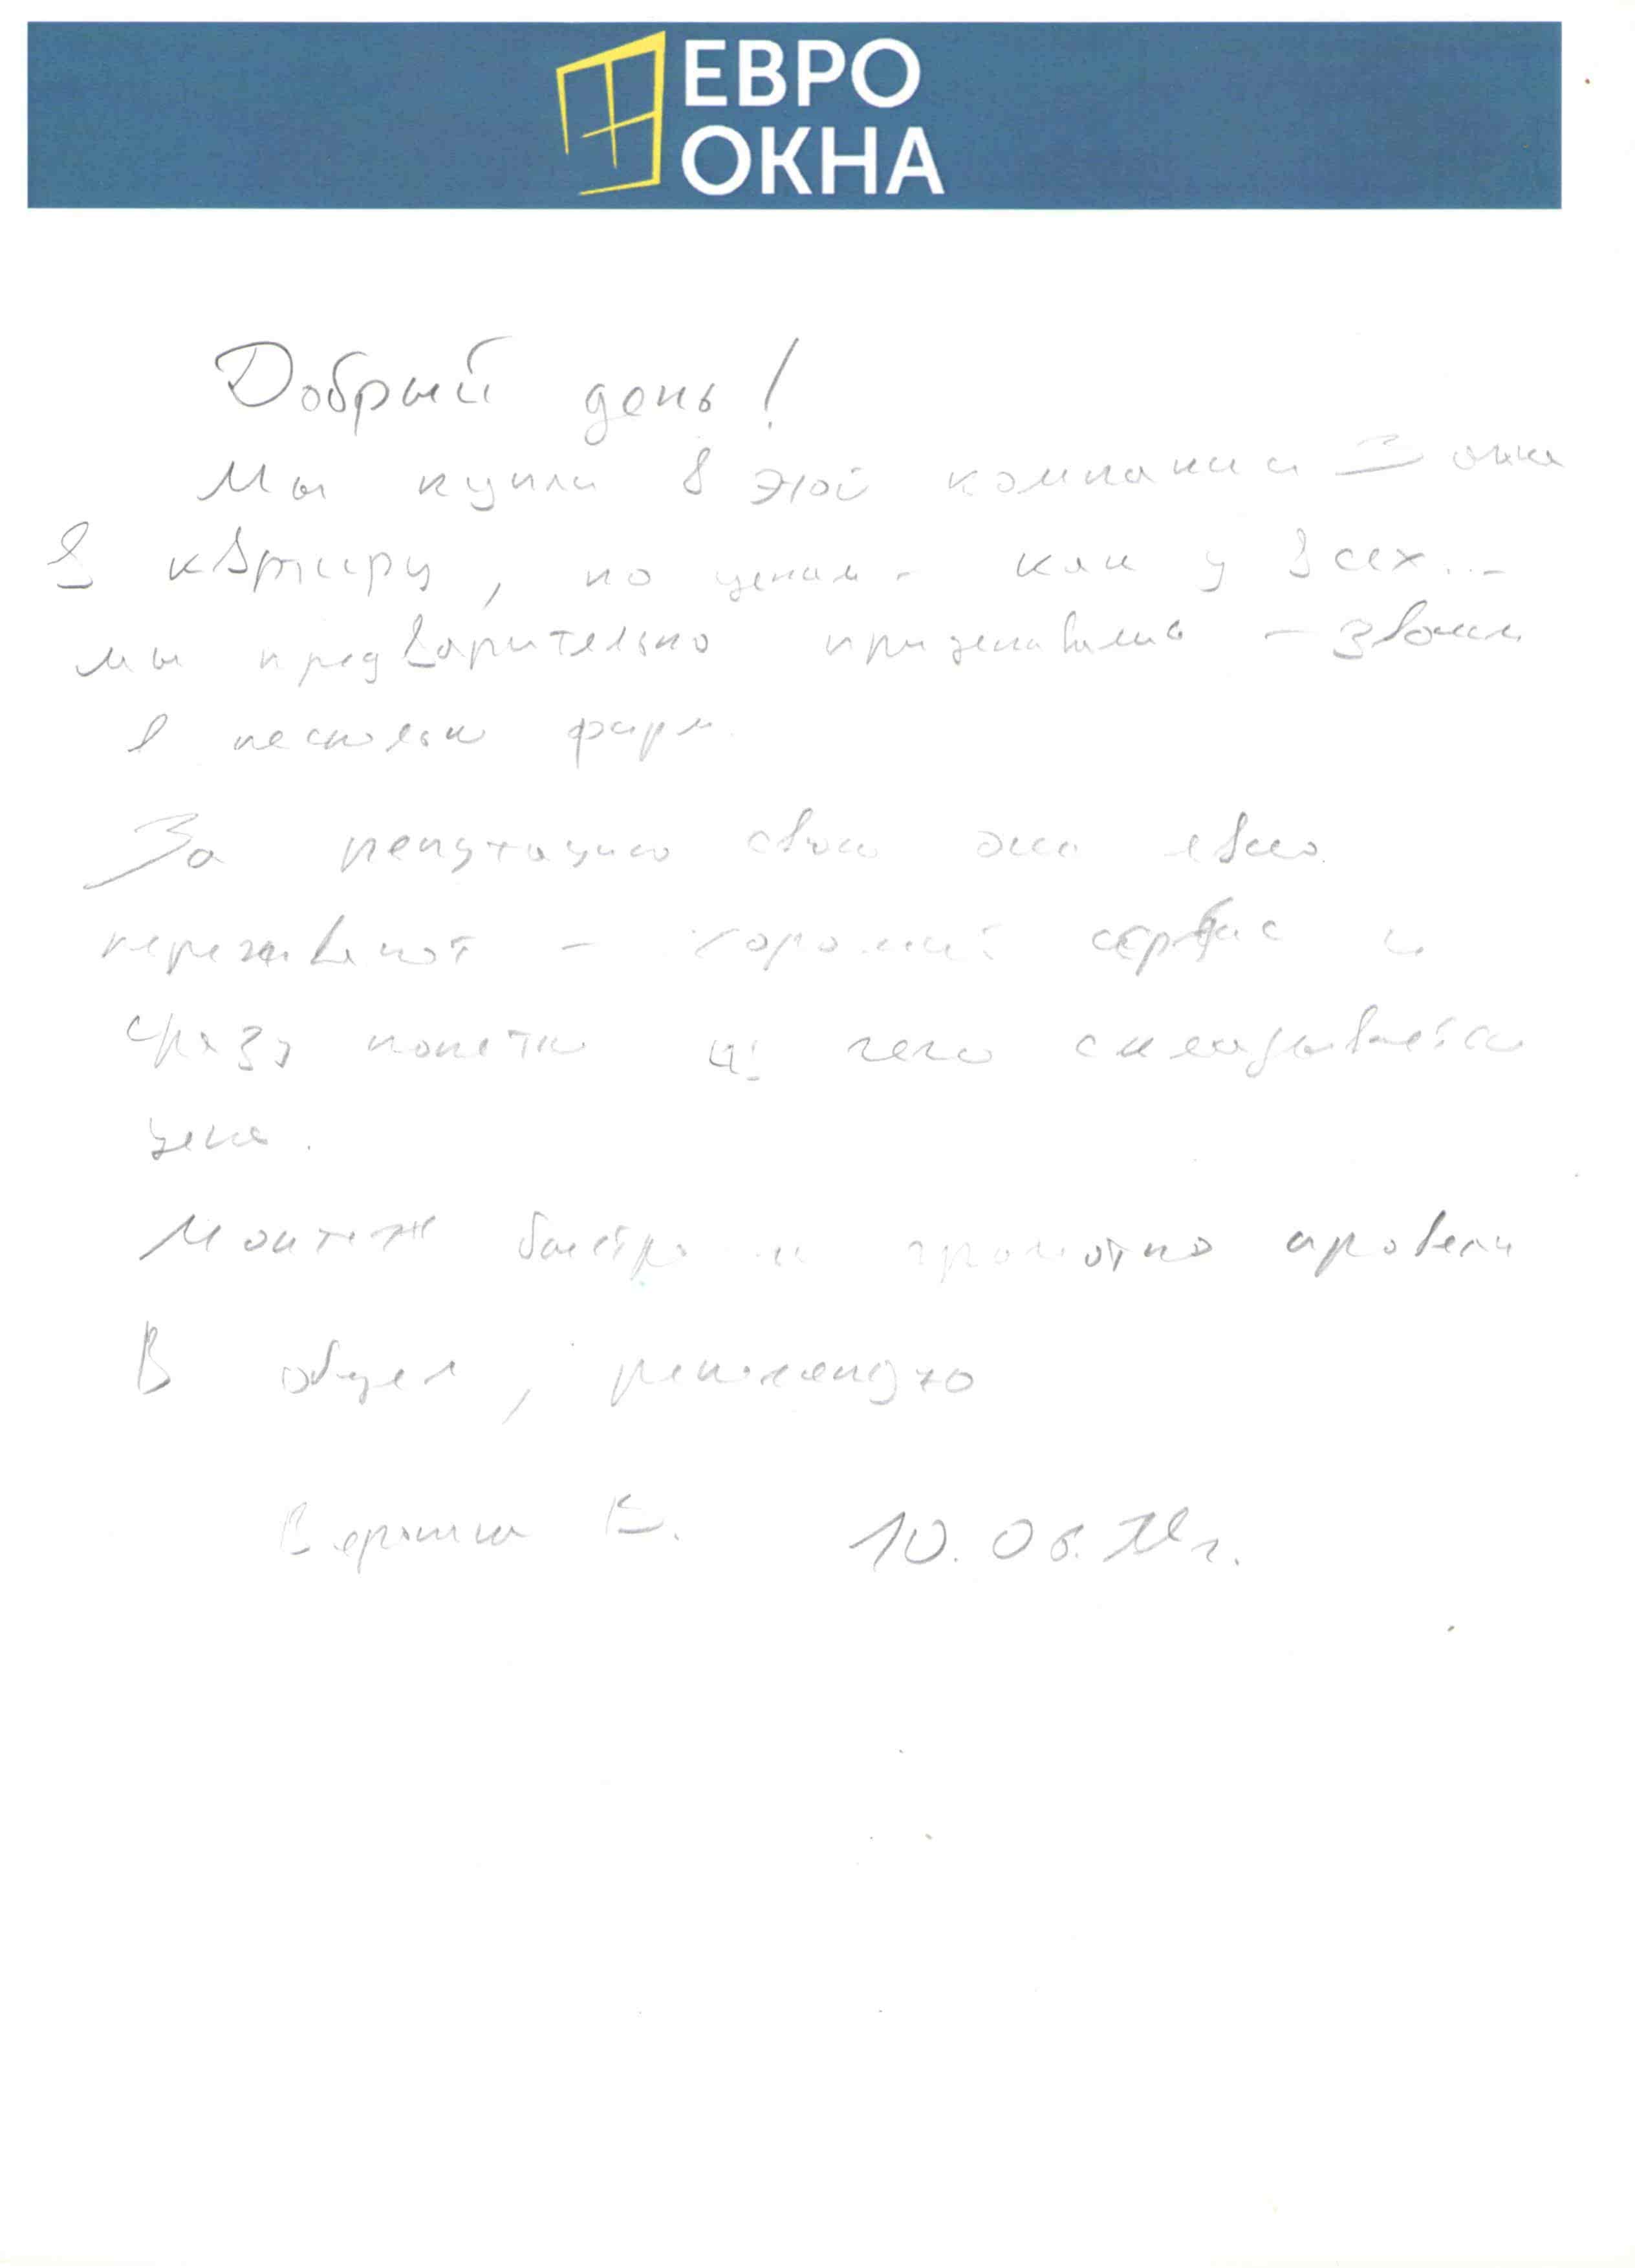 ЕВРО
ОКНА
Добрый день!
Мы купили в этой компании 3 окна
в квартиру, по ценам - как у всех...
мы предварительно приценивались - звонили
в несколько фирм.
За репутацию свою они явно
переживают - хороший сервис и
сразу понятно из чего складывается
цена.
Монтаж быстро и грамотно провели
В общем, рекомендую
В. 10.06. г.